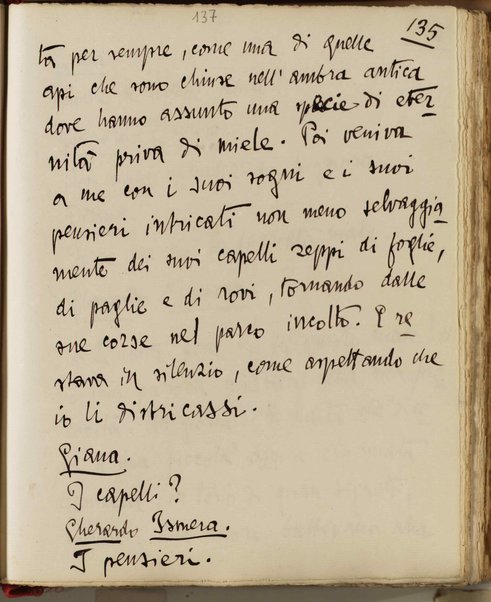 137
135
tà per sempre, come una di quelle
api che sono chiuse nell'ambra antica
dove hanno assunto una specie di eter-
nità priva di miele. Poi veniva
a me con i suoi sogni e i suoi
pensieri intricati non meno selvaggia-
mente dei suoi capelli zeppi di foglie,
di paglie e di rovi, tornando dalle
sue corse nel parco incolto. E re-
stava in silenzio, come aspettando che
io li districassi.
Giana.
I capelli?
Gherardo Ismera.
I pensieri.